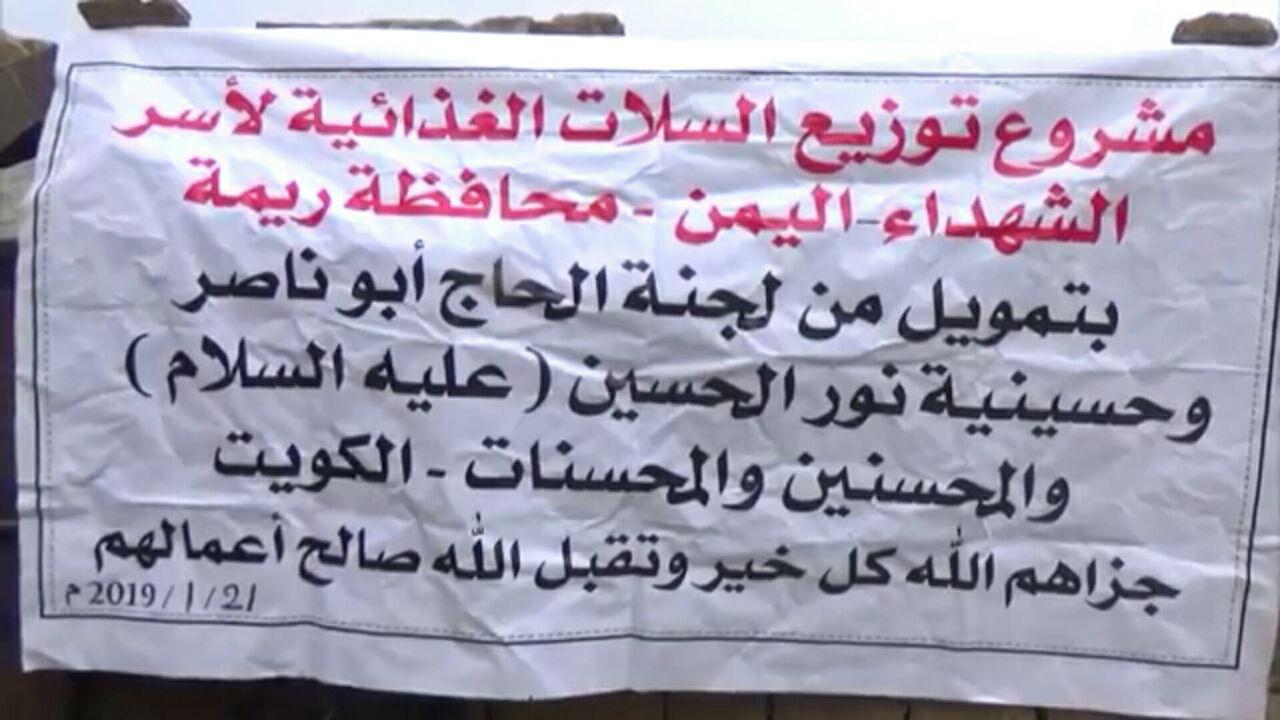 مشروع توزيع السلات الغذائية لأسر
الشهداء-اليمن - محافظة ريمة
بتمويل من لجنة الحاج أبو ناصر
وحسينية نور الحسين ( عليه السلام )
والمحسنين والمحسنات - الكويت
جزاهم الله كل خير وتقبل الله صالح أعمالهم
2019/1/21 م